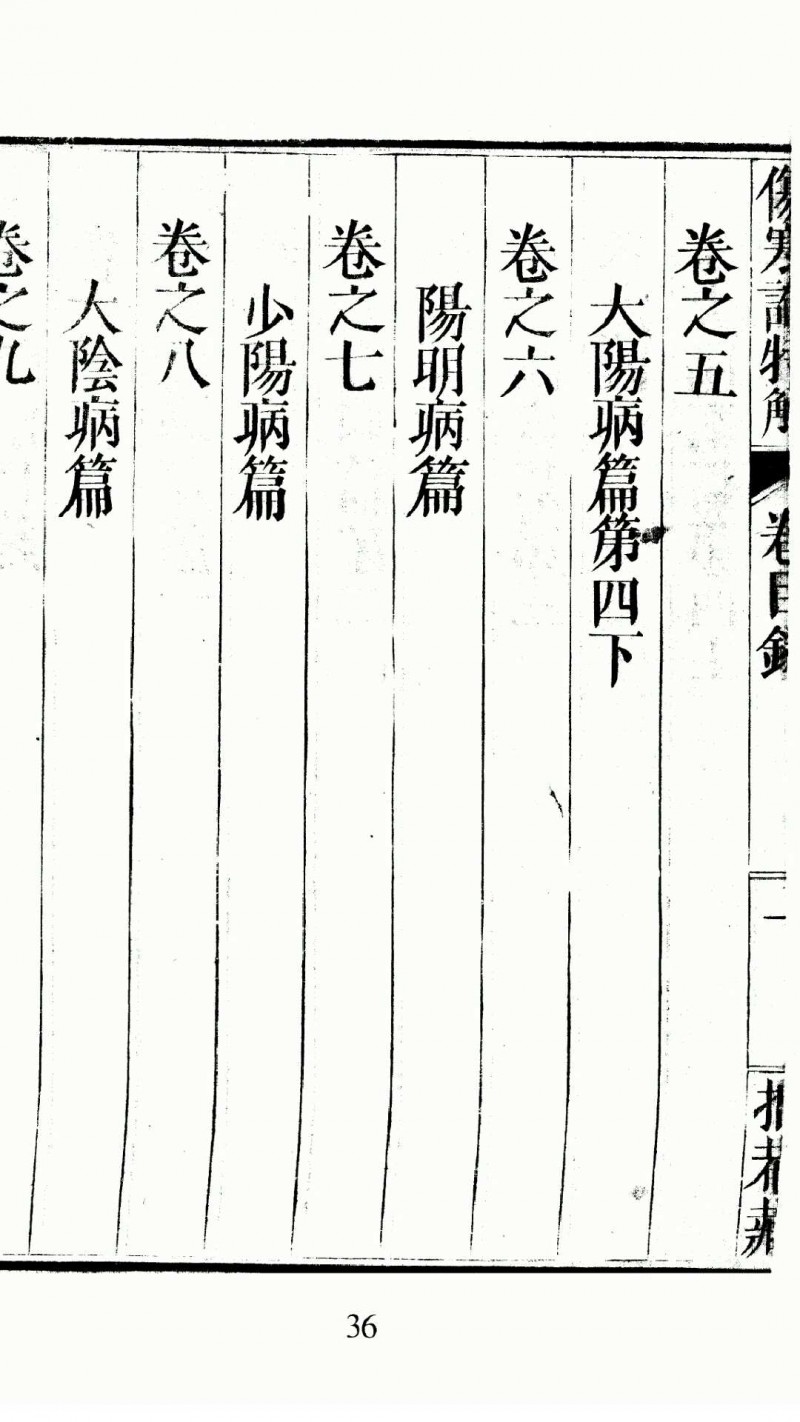 傷寒論特解
卷目錄
一
卷之五
大陽病篇第四下
卷之六
陽明病篇
卷之七
少陽病篇
卷之八
大陰病篇
卷之九
36